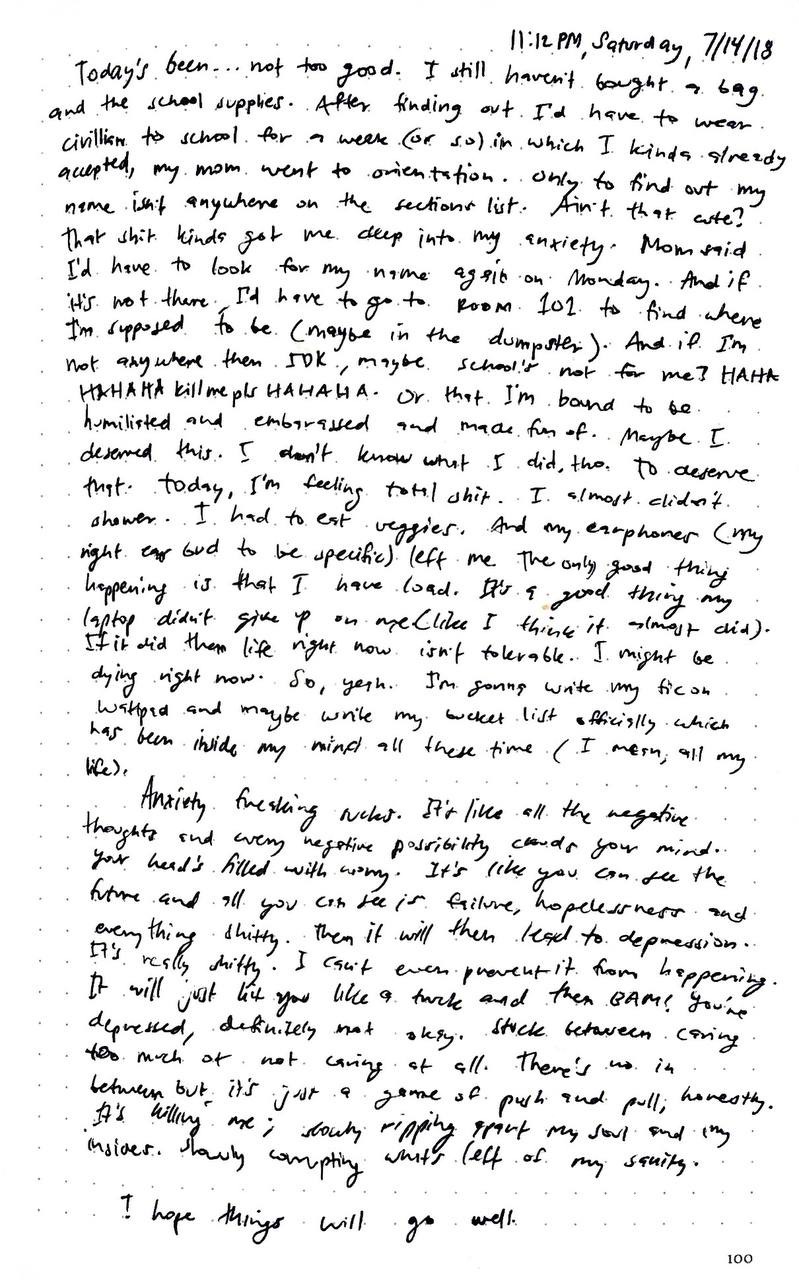 11:12 PM, Saturday, 7/14/18
Today's been... not too good. I still haven't bought a bag
and the school supplies. After finding out I'd have to wear
civillian to school for a week (or so) in which I kinda already
accepted, my mom went to orientation. Only to find out my
name isn't anywhere on the sections list. Ain't that cute?
That shit kinda got me deep into my anxiety. Mom said
I'd have to look for my name again on Monday. And if
it's not there, I'd have to go to ROOM 101 to find where
I'm supposed to be (maybe in the dumpster). And if I'm
not anywhere then IDK, maybe school's not for me? HAHA
HAHAHA kill me pls HAHAHA. Or that I'm bound to be
humiliated and embarassed and made fun of. Maybe I
deserved this. I don't know what I did, tho. To deserve
that. Today, I'm feeling total shit. I almost didn't
shower. I had to eat veggies. And my earphones (my
right ear bud to be specific) left me. The only good thing
happening is that I have load. It's a good thing my
laptop didn't give up on me (like I think it almost did).
If it did then life right now isn't tolerable. I might be
dying right now. So, yeah. I'm gonna write my fic on
wattpad and maybe write my bucket list officially which
has been inside my mind all these time (I mean, all my
life).
Anxiety freaking sucks. It's like all the negative
thoughts and every negative possibility clouds your mind.
Your head's filled with worry. It's like you can see the
future and all you can see is failure, hopelessness and
everything shitty. Then it will then lead to depression.
It's really shitty. I can't even prevent it from happening.
It will just hit you like a truck and then BAM! You're
depressed, definitely not okay. Stuck between caring
too much or not caring at all. There's no in
between but it's just a game of push and pull, honestly.
It's killing me; slowly ripping apart my soul and my
insides. Slowly corrupting what's left of my sanity.
I hope things will go well.
100